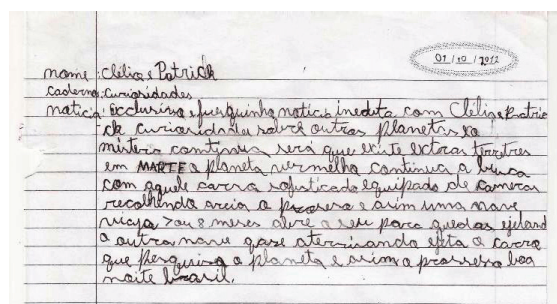 01/10/2012
nome: Clélia e Patrick
caderno: curiosidades
noticia: exclusiva e fresquinha noticia inedita com Clélia e Patri
ck curiosidades sobre outros planetas xo
misterio continua será que existe extras terrtres
em MARTE o planeta vermelho continua a busca
com aquele carro sofisticado equipado de cameras
recolhendo areia o prosseso e asim uma nave
viaja 7 ou 8 meses abre a seu para quedas ejetand
o outra nave quase aterrisando ejeta o carro
que pesquisa o planeta e asim o prossesso boa
noite brasil.